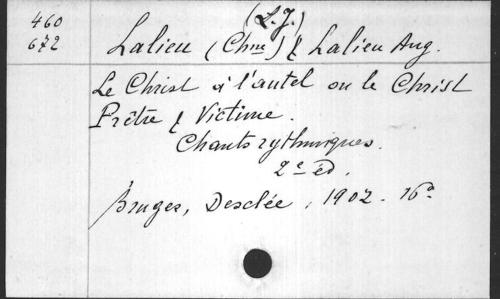 460
672
(L.J.)
Lalieu (Chne) & Lalieu Aug.
Le Christ à l'autel ou le Christ
Prêtre & Victime.
Chants rythmiques.
2e éd.
Bruges, Desclée, 1902. 16o